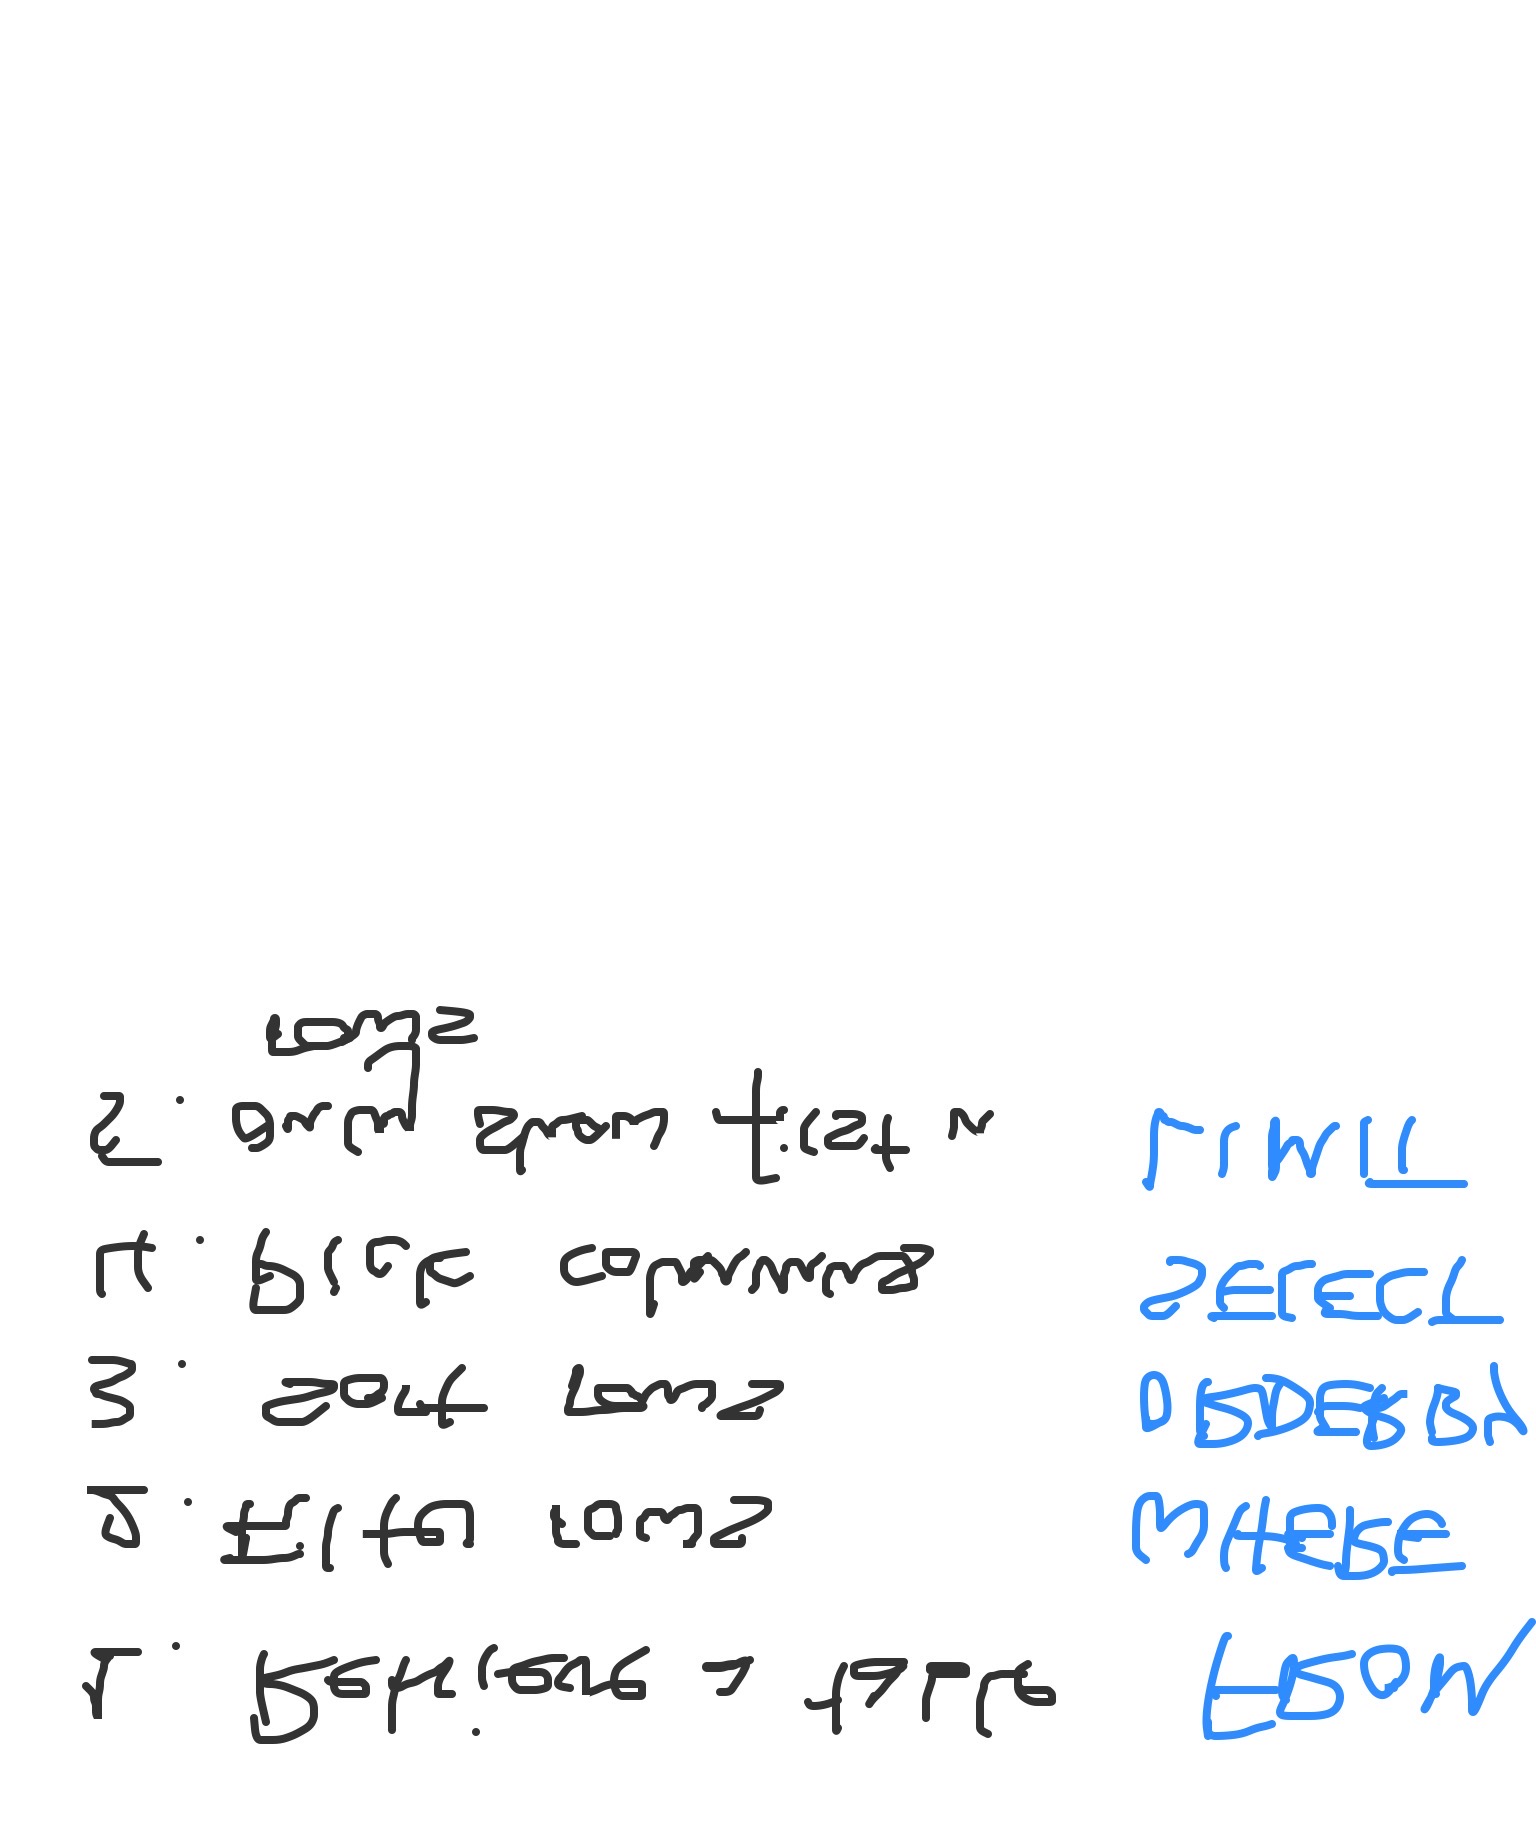 1. Retrieve a table FROM
2. Filter rows WHERE
3. Sort rows ORDER BY
4. Pick columns SELECT
5. only show first n LIMIT
rows